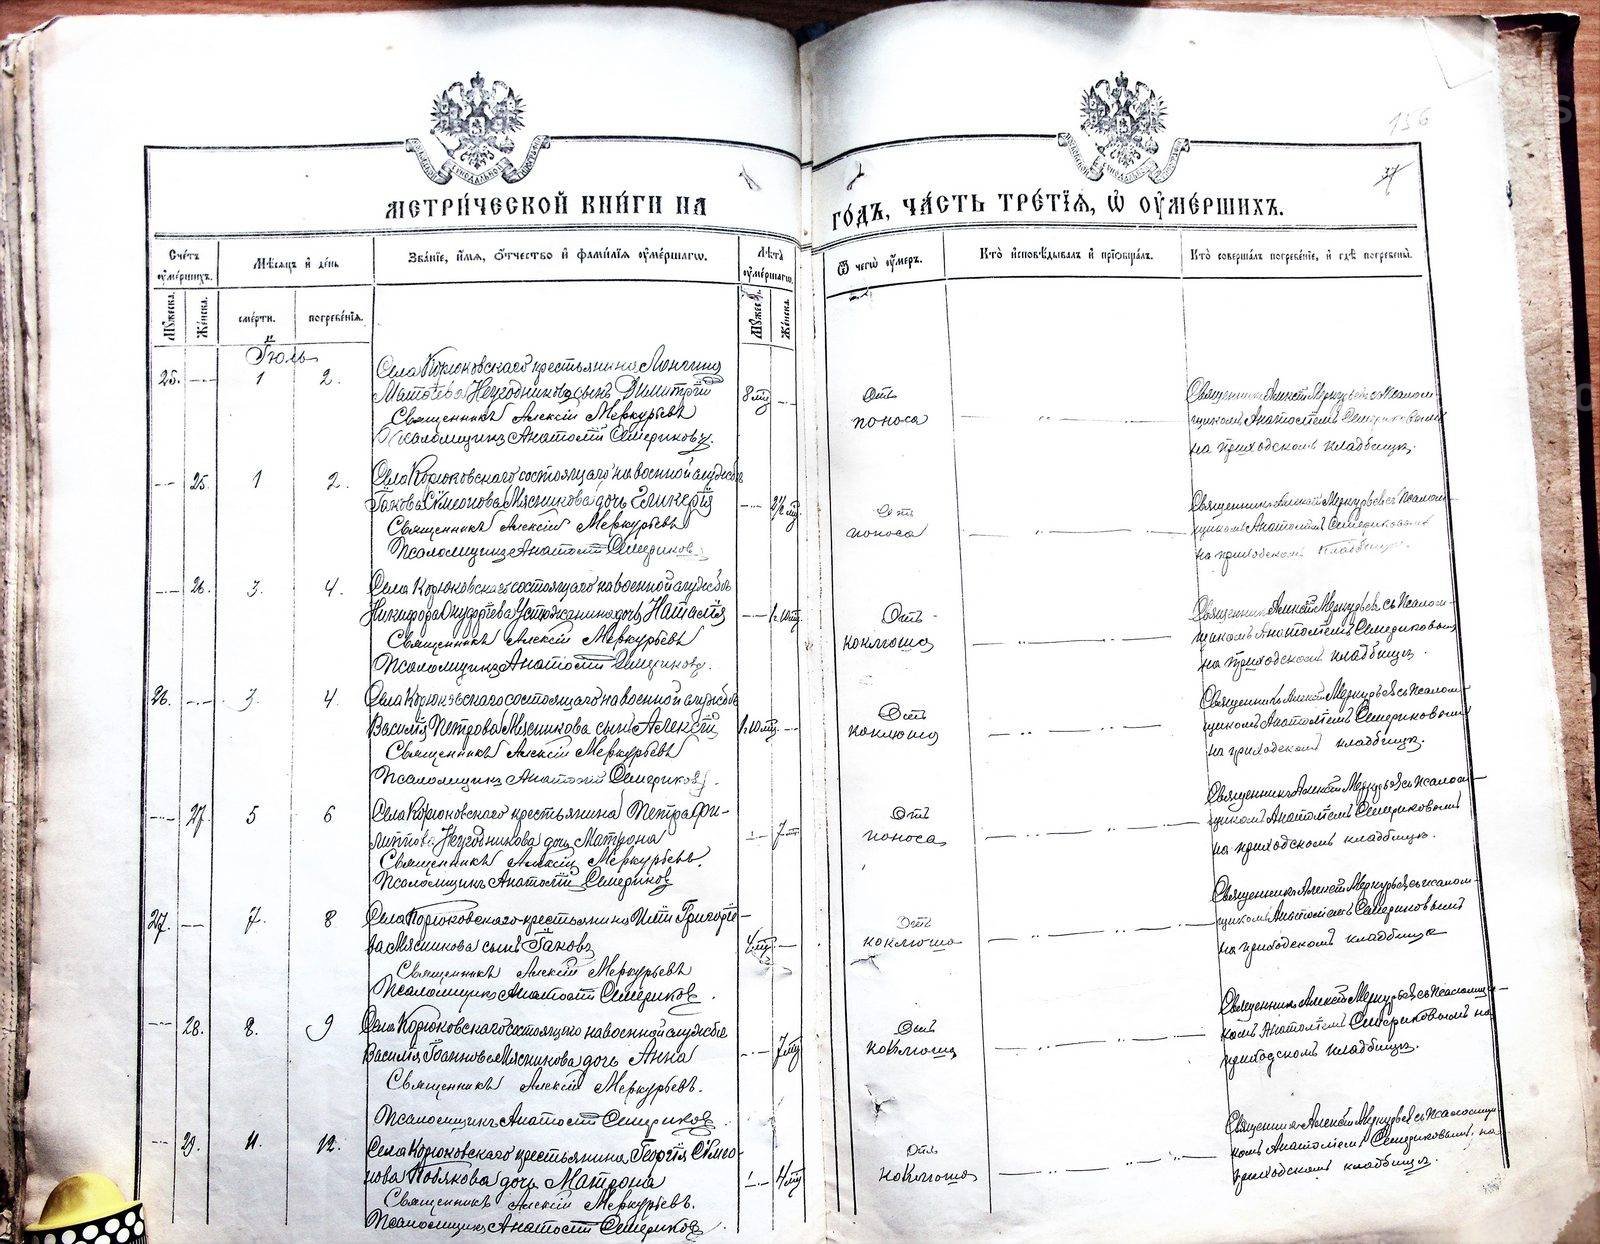 156
37
МЕТРИ́ЧЕСКОЙ КНИ́ГИ НА
ГО́ДЪ, ЧА́СТЬ ТРЕ́ТЇѦ, Ѡ ОУМЕ́РШИХЪ.
Сче́тъ оуме́ршихъ.
Мѣ́сѧцъ и҆ де́нь
Зва́нїе, и҆́мѧ, о҆́тчество и҆ фами́лїѧ оуме́ршагѡ.
Лѣ́та оуме́ршагѡ.
Ѿ чегѡ̀ оу́меръ.
Кто̀ и҆сповѣ́дывалъ и҆ прїѡбща́лъ.
Кто̀ соверша́лъ погребе́нїе, и҆ гдѣ̀ погребены̀.
Мꙋ́жеска.
Же́нска.
сме́рти.
погребе́нїѧ.
Мꙋ́жеска.
Же́нска.
Іюль
25. 1 2. Села Корюковскаго крестьянина Лонгина
Матѳеева Негодникова сынъ Димитрій 8 мц
Священникъ Алексій Меркурьевъ
Псаломщикъ Анатолій Семериковъ.
Отъ
поноса
Священникъ Алексій Меркурьевъ съ псалом-
щикомъ Анатоліемъ Семериковымъ
на приходскомъ кладбищѣ.
25. 1 2. Села Корюковскаго состоящаго на военной службѣ
Іакова Симеонова Мясникова дочь Гликерія 2½ мц
Священникъ Алексій Меркурьевъ
Псаломщикъ Анатолій Семериковъ.
Отъ
поноса
Священникъ Алексій Меркурьевъ съ Псалом-
щикомъ Анатоліемъ Семериковымъ
на приходскомъ кладбищѣ.
26. 3. 4. Села Корюковскаго состоящаго на военной службѣ
Никифора Устюжанина дочь Наталія 1 г. 10 мц.
Священникъ Алексій Меркурьевъ
Псаломщикъ Анатолій Семериковъ.
Отъ
коклюша
Священникъ Алексій Меркурьевъ съ Псалом-
щикомъ Анатоліемъ Семериковымъ
на приходскомъ кладбищѣ.
26. 3. 4. Села Корюковскаго состоящаго на военной службѣ
Василія Петрова Мясникова сынъ Алексій 1 г. 10 мц.
Священникъ Алексій Меркурьевъ
Псаломщикъ Анатолій Семериковъ.
Отъ
коклюша
Священникъ Алексій Меркурьевъ съ Псалом-
щикомъ Анатоліемъ Семериковымъ
на приходскомъ кладбищѣ.
27. 5 6 Села Корюковскаго крестьянина Петра Фи-
липпова Негодникова дочь Матрона 7 мц
Священникъ Алексій Меркурьевъ.
Псаломщикъ Анатолій Семериковъ
Отъ
поноса
Священникъ Алексій Меркурьевъ съ Псалом-
щикомъ Анатоліемъ Семериковымъ
на приходскомъ кладбищѣ.
27. 7. 8 Села Корюковскаго крестьянина Григорье-
ва Мясникова сынъ Іаковъ 4 мц
Священникъ Алексій Меркурьевъ
Псаломщикъ Анатолій Семериковъ.
Отъ
коклюша
Священникъ Алексій Меркурьевъ съ псалом-
щикомъ Анатоліемъ Семериковымъ
на приходскомъ кладбищѣ
28. 8. 9 Села Корюковскаго состоящаго на военной службѣ
Василія Іоаннова Мясникова дочь Анна 7 мц
Священникъ Алексій Меркурьевъ.
Псаломщикъ Анатолій Семериковъ.
Отъ
коклюша
Священникъ Алексій Меркурьевъ съ Псаломщи-
комъ Анатоліемъ Семериковымъ на
приходскомъ кладбищѣ.
29. 11. 12. Села Корюковскаго крестьянина Георгія Симео-
нова дочь Матрона 4 мц
Священникъ Алексій Меркурьевъ.
Псаломщикъ Анатолій Семериковъ.
Отъ
коклюша
Священникъ Алексій Меркурьевъ съ Псаломщи-
комъ Анатоліемъ Семериковымъ на
приходскомъ кладбищѣ.